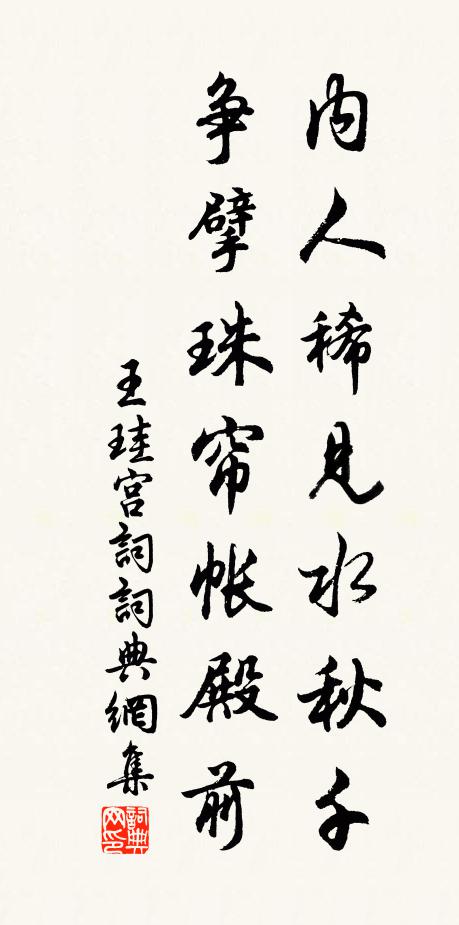 内人稀見水秋千
争擘珠帘帐殿前
王珪宫詞詞典網集
詞典网印